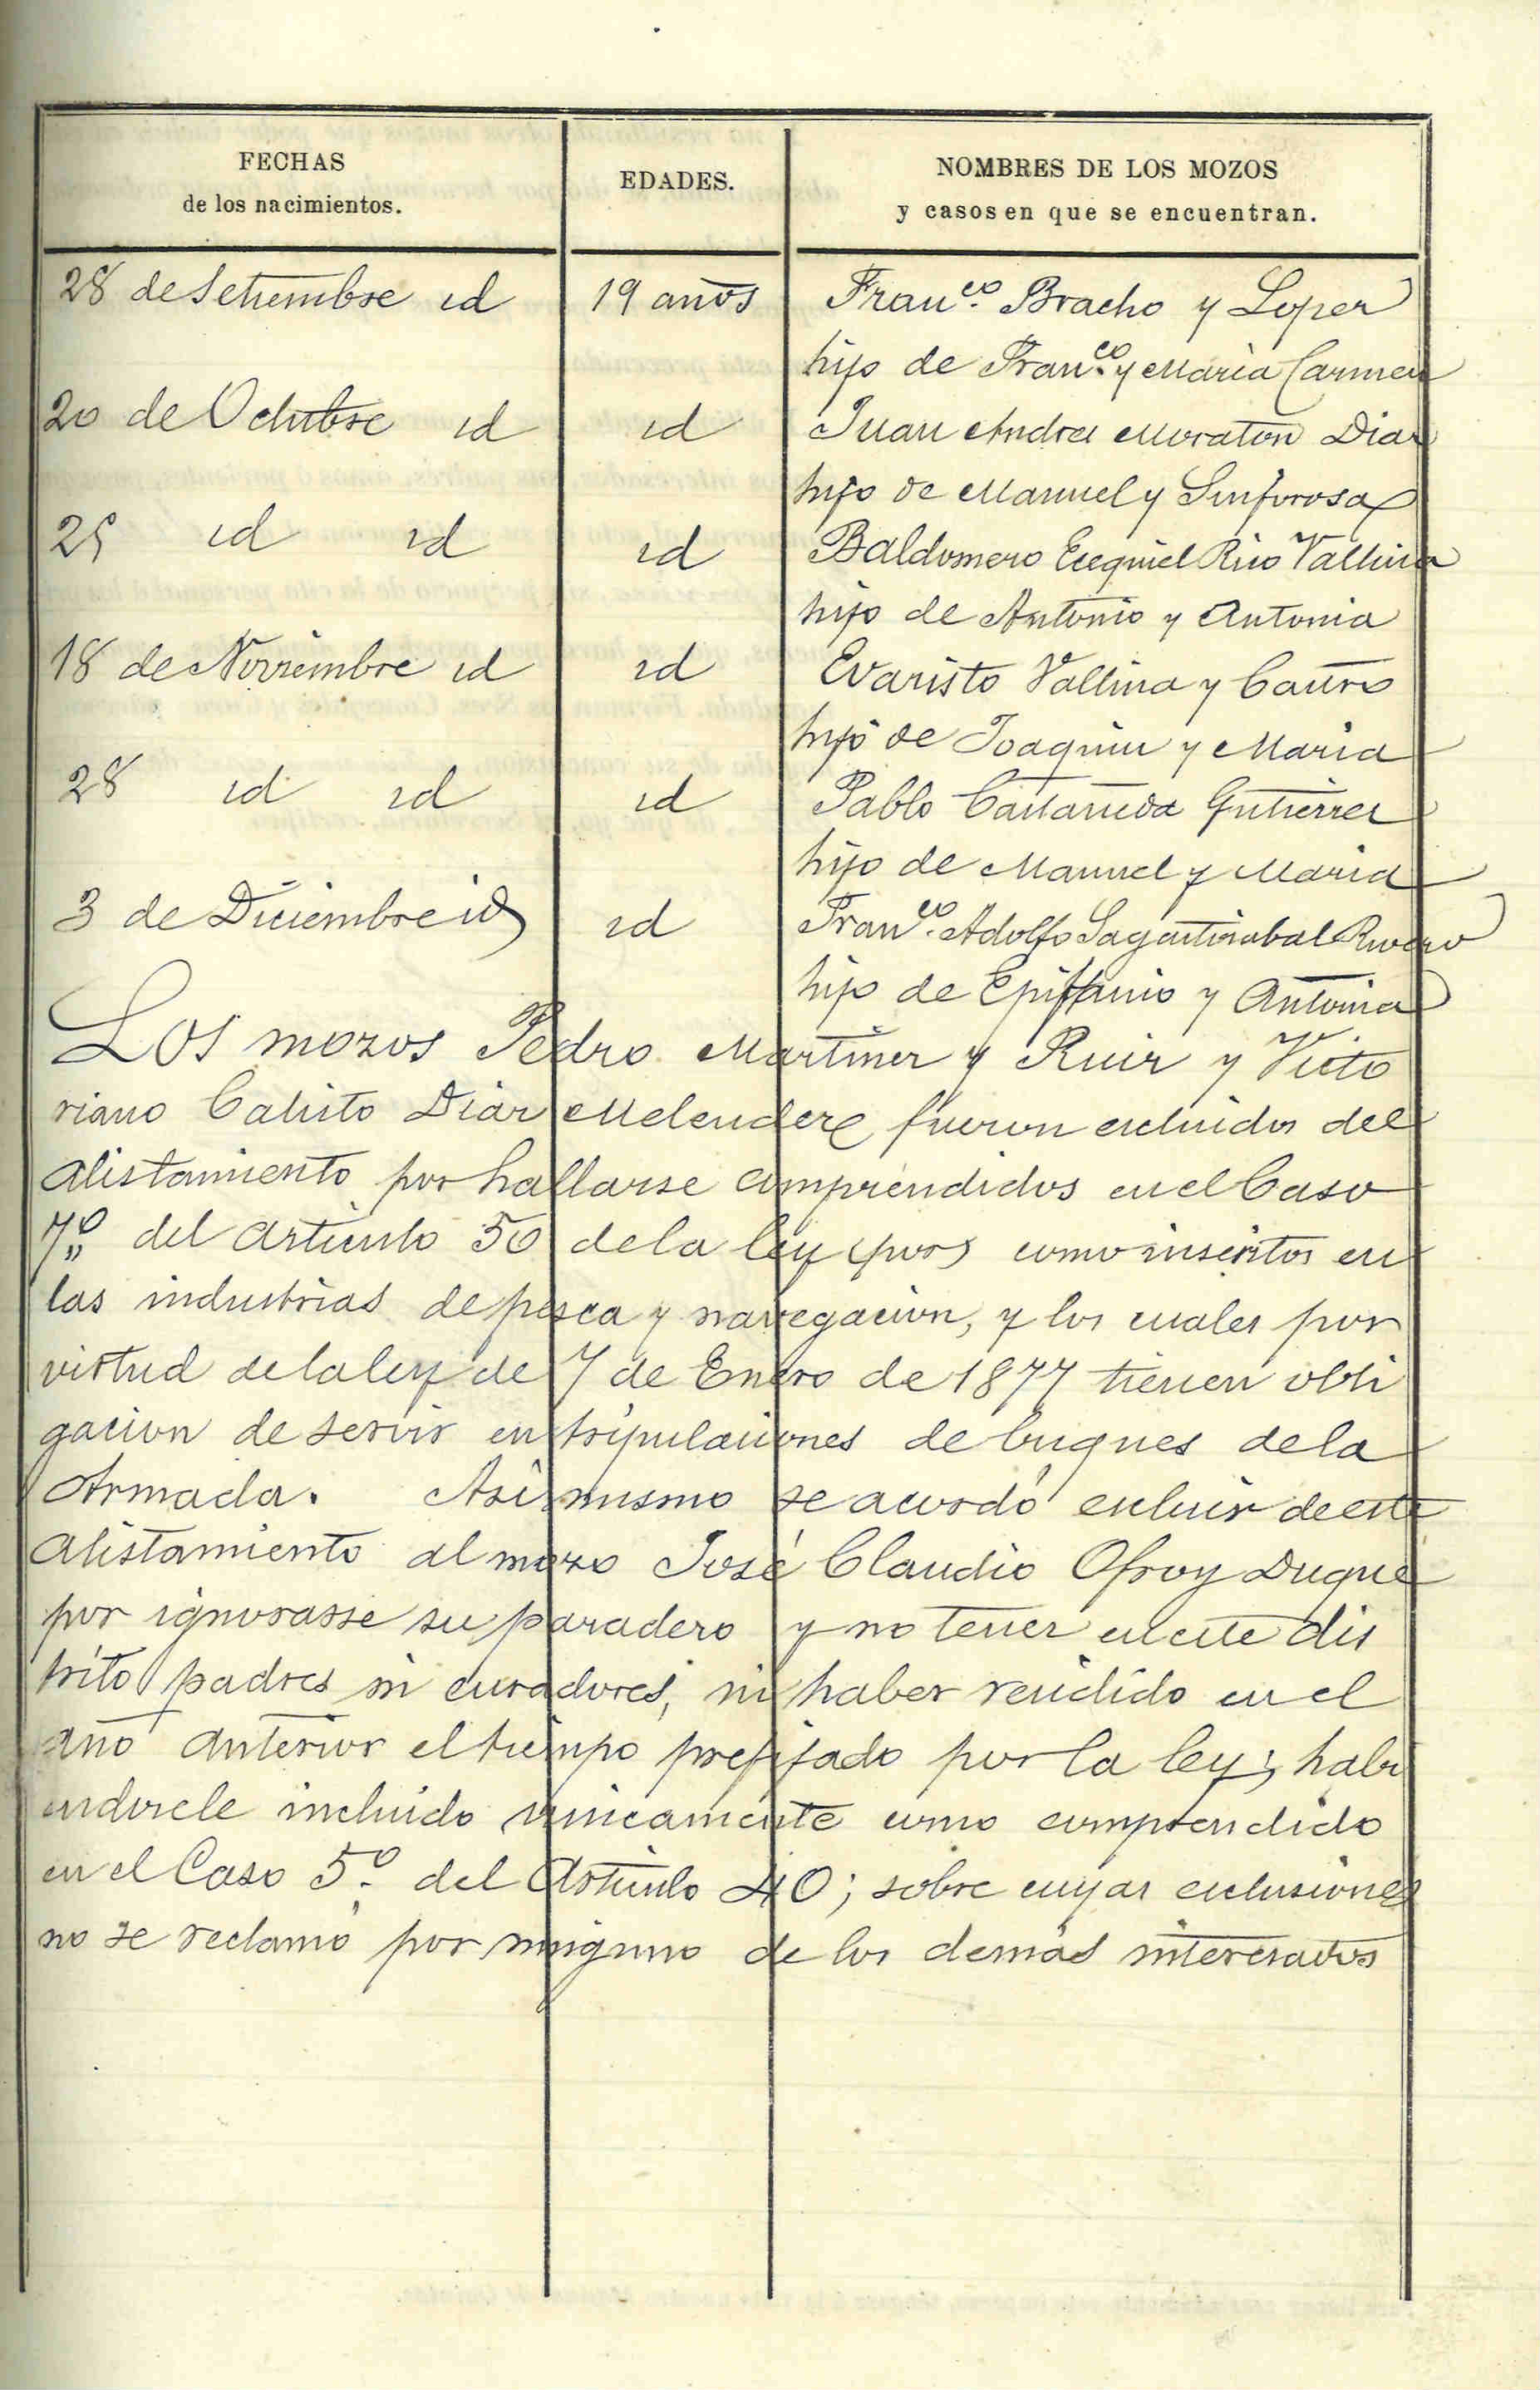 FECHAS
de los nacimientos.
EDADES.
NOMBRES DE LOS MOZOS
y casos en que se encuentran.
28 de Setiembre id 19 años Franco. Bracho y Lopez
hijo de Franco. y Maria Carmen
20 de Octubre id id Juan Andres Moraton Diaz
hijo de Manuel y Sinforosa
25 id id id Baldomero Ezequiel Rico Vallina
hijo de Antonio y Antonia
18 de Noviembre id id Evaristo Vallina y Castro
hijo de Joaquin y Maria
28 id id id Pablo Castaneda Gutierrez
hijo de Manuel y Maria
3 de Diciembre id id Franco. Adolfo Sagastizabal Rivero
hijo de Epiffanio y Antonia
Los mozos Pedro Martinez y Ruiz y Victo
riano Calisto Diaz Melendez fueron excluidos del
alistamiento por hallarse comprendidos en el Caso
7º del articulo 50 de la ley (por) como inscritos en
las industrias de pesca y navegacion, y los cuales por
virtud de la ley de 7 de Enero de 1877 tienen obli
gacion de servir en tripulaciones de buques de la
Armada. Asi mismo se acordó excluir de este
alistamiento al mozo José Claudio Ofroy Duque
por ignorarse su paradero y no tener en este dis
trito padres ni curadores, ni haber residido en el
año anterior el tiempo prefijado por la ley; habi
endosele incluido unicamente como comprendido
en el Caso 5º. del Articulo 40; sobre cuyas exclusiones
no se reclamó por ninguno de los demás interesados